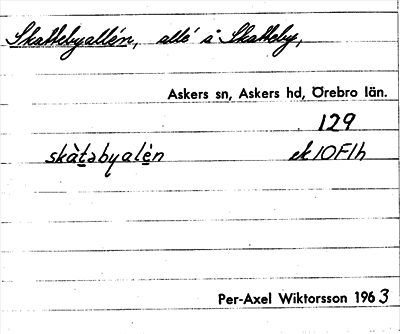 Skattebyallén, allé å Skatteby,
Askers sn, Askers hd, Örebro län.
129
skàtəbyalén ek 10F1h
Per-Axel Wiktorsson 1963